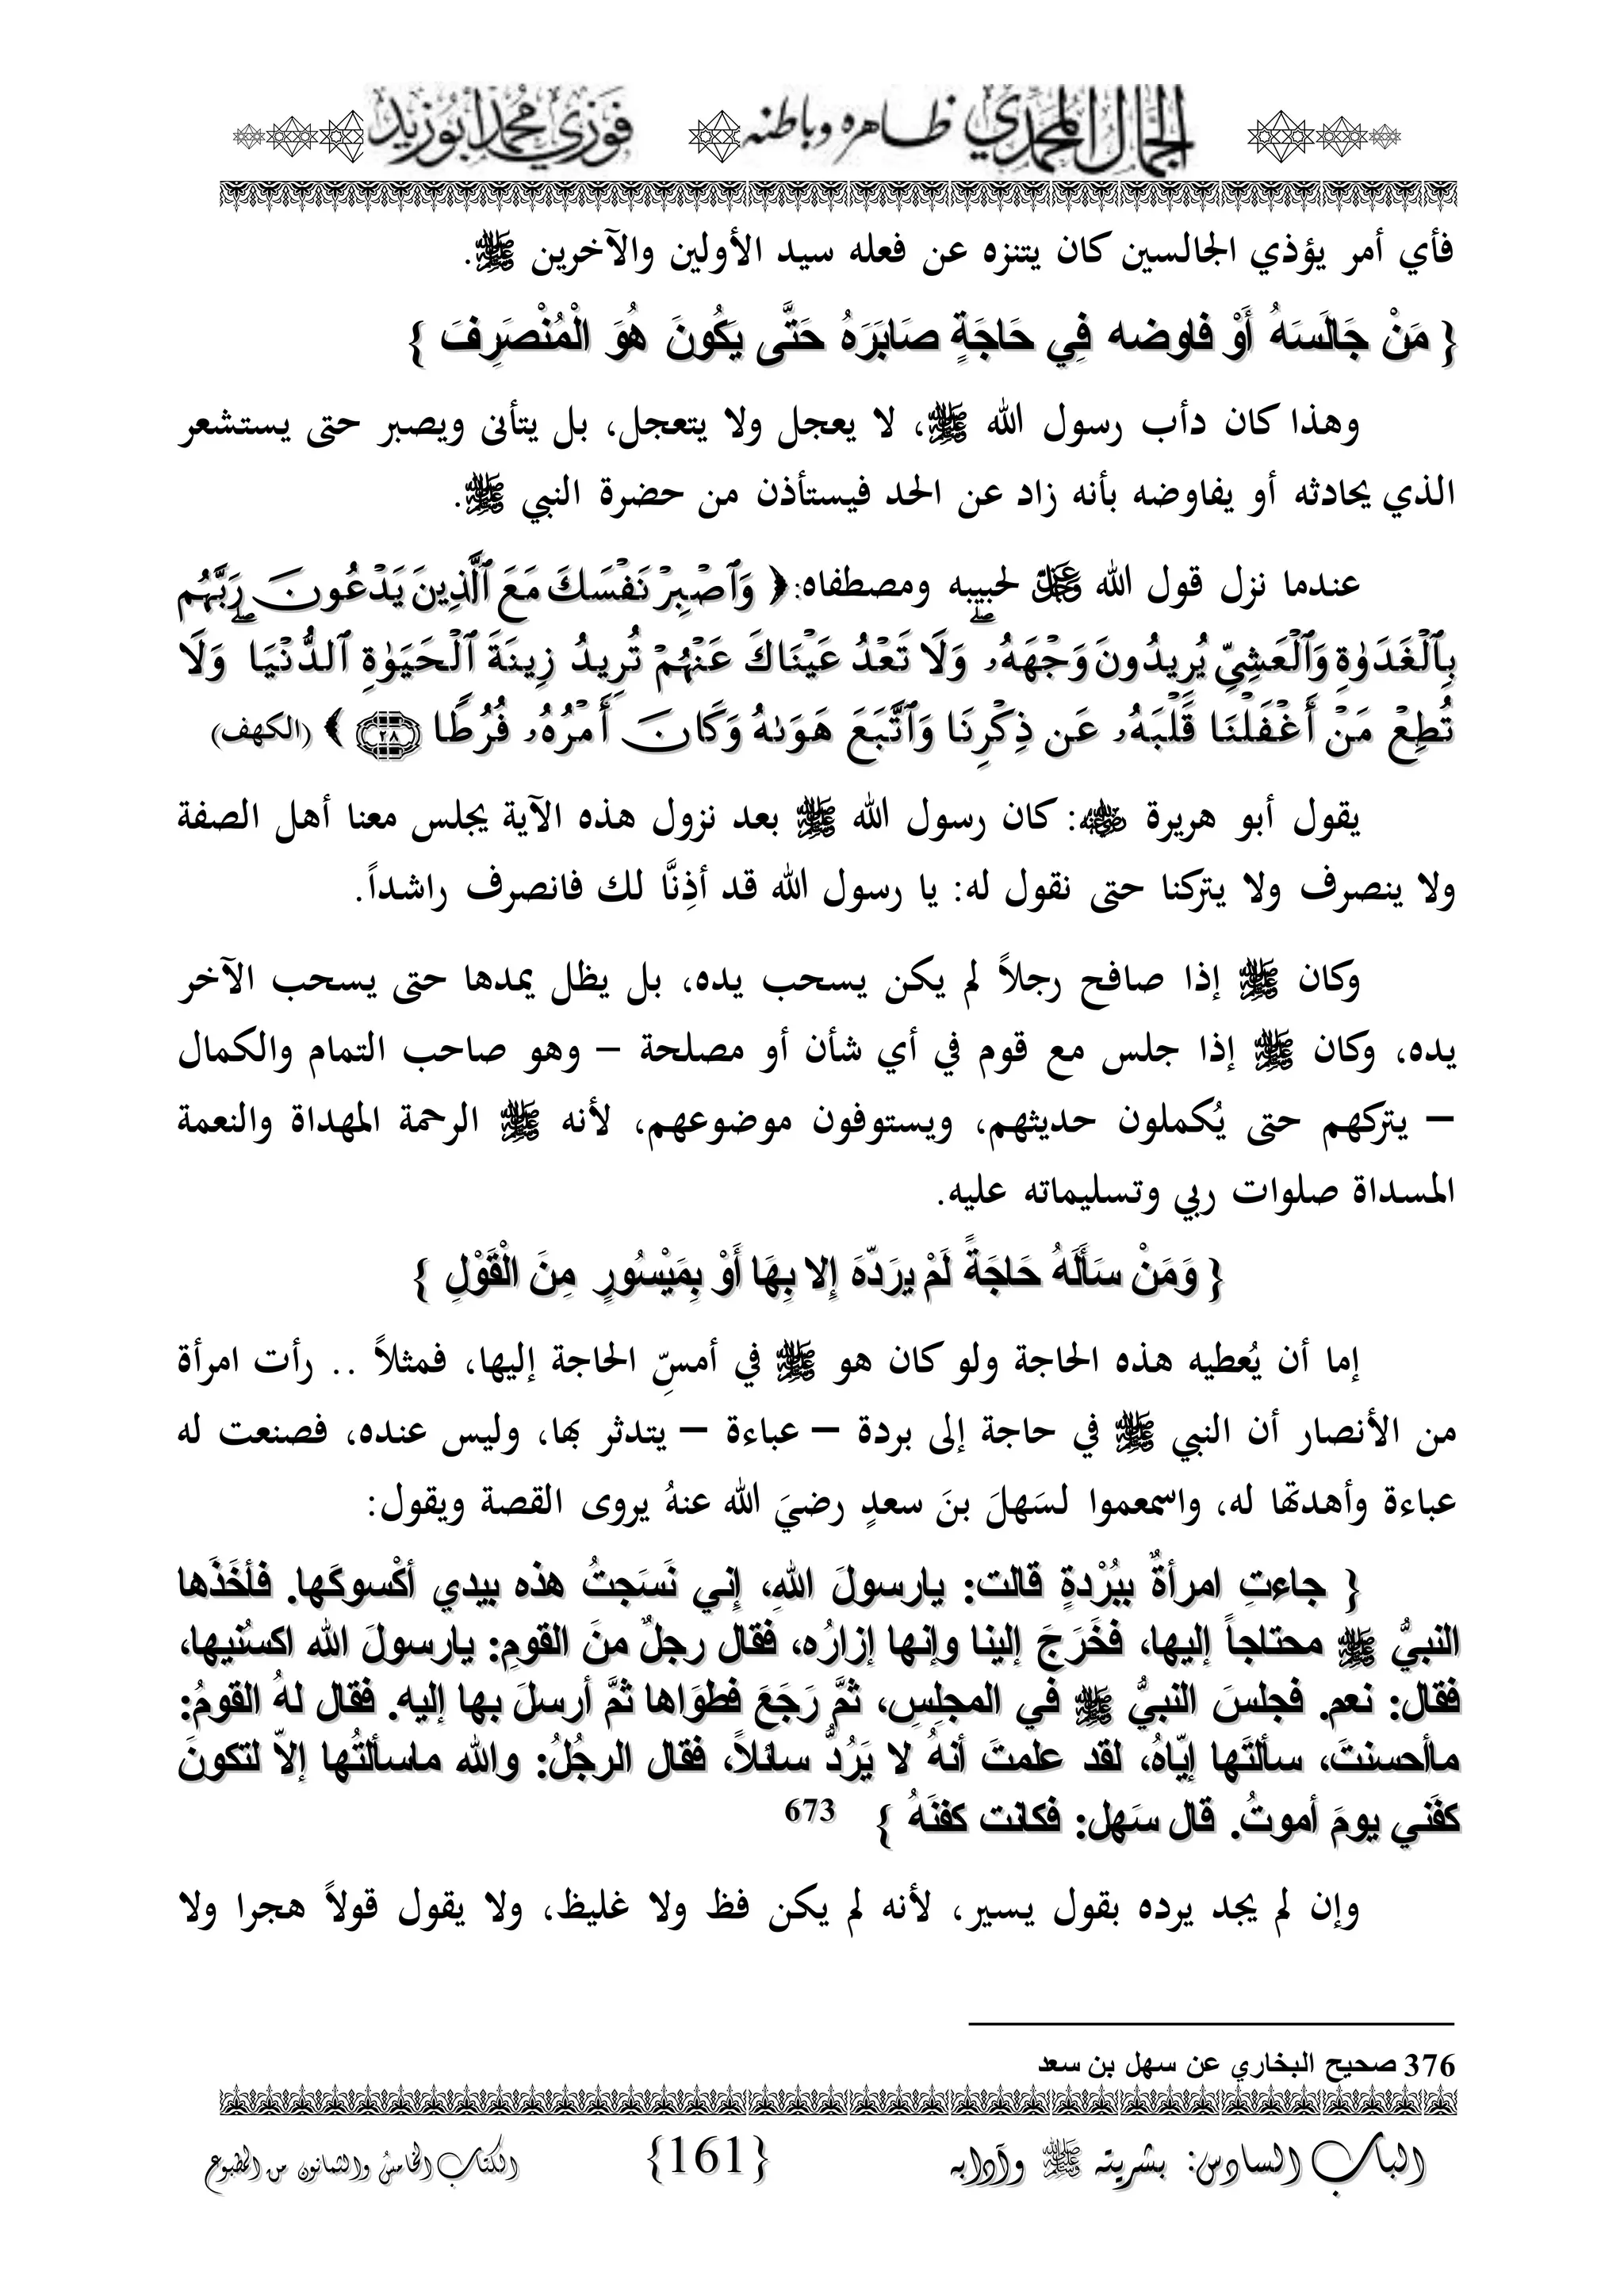 الجمال المحمدي ظاهره وباطنه فوزي محمد أبوزيد
فأي أمر يؤذي الجالسين كان يتنزه عن فعله سيد الأولين والآخرين ﷺ.
{ مَنْ جَالَسَهُ أَوْ فاوضه فِي حَاجَةٍ صَابَرَهُ حَتَّى يَكُونَ هُوَ الْمُنْصَرِفَ }
وهذا كان دأب رسول الله ﷺ، لا يعجل ولا يتعجل، بل يتأنى ويصبر حتى يستشعر
الذي يحادثه أو يفاوضه بأنه زاد عن الحد فيستأذن من حضرة النبي ﷺ.
عندما نزل قول الله ﷻ لحبيبه ومصطفاه: ﴿ وَٱصْبِرْ نَفْسَكَ مَعَ ٱلَّذِينَ يَدْعُونَ رَبَّهُم
بِٱلْغَدَوٰةِ وَٱلْعَشِىِّ يُرِيدُونَ وَجْهَهُۥ ۖ وَلَا تَعْدُ عَيْنَاكَ عَنْهُمْ تُرِيدُ زِينَةَ ٱلْحَيَوٰةِ ٱلدُّنْيَا ۖ وَلَا
تُطِعْ مَنْ أَغْفَلْنَا قَلْبَهُۥ عَن ذِكْرِنَا وَٱتَّبَعَ هَوَىٰهُ وَكَانَ أَمْرُهُۥ فُرُطًا ۝٢٨ ﴾ (الكهف)
يقول أبو هريرة ؓ: كان رسول الله ﷺ بعد نزول هذه الآية يجلس معنا أهل الصفة
ولا ينصرف ولا يتركنا حتى نقول له: يا رسول الله قد أذِنَّا لك فانصرف راشداً.
وكان ﷺ إذا صافح رجلاً لم يكن يسحب يده، بل يظل يمدها حتى يسحب الآخر
يده، وكان ﷺ إذا جلس مع قوم في أي شأن أو مصلحة – وهو صاحب التمام والكمال
– يتركهم حتى يُكملون حديثهم، ويستوفون موضوعهم، لأنه ﷺ الرحمة المهداة والنعمة
المسداة صلوات ربي وتسليماته عليه.
{ وَمَنْ سَأَلَهُ حَاجَةً لَمْ يرَدّهَ إِلا بِهَا أَوْ بِمَيْسُورٍ مِنَ الْقَوْلِ }
إما أن يُعطيه هذه الحاجة ولو كان هو ﷺ في أمسِّ الحاجة إليها، فمثلاً .. رأت امرأة
من الأنصار أن النبي ﷺ في حاجة إلى بردة – عباءة – يتدثر بها، وليس عنده، فصنعت له
عباءة وأهدتها له، واسمعوا لسَهلَ بنَ سعدٍ رضيَ الله عنهُ يروى القصة ويقول:
{ جاءتِ امرأةٌ ببُرْدةٍ قالت: يارسولَ اللهِ، إِني نَسَجتُ هذه بيدي أكْسوكَها. فأخَذَها
النبيُّ ﷺ محتاجاً إليها، فخَرَجَ إلينا وإنها إزارُه، فقال رجلٌ منَ القومِ: يارسولَ الله اكسُنيها،
فقال: نعم. فجلسَ النبيُّ ﷺ في المجلِسِ، ثمَّ رَجَعَ فطوَاها ثمَّ أرسلَ بها إليه. فقال لهُ القومُ:
ماأحسنتَ، سألتَها إيّاهُ، لقد علمتَ أنهُ لا يَرُدُّ سائلاً، فقال الرجُلُ: والله ماسألتُها إلاّ لتكونَ
كفَني يومَ أموتُ. قال سَهل: فكانت كفنَهُ } 673
وإن لم يجد يرده بقول يسير، لأنه لم يكن فظ ولا غليظ، ولا يقول قولاً هجرا ولا
376 صحيح البخاري عن سهل بن سعد
الباب السادس: بشريته ﷺ وآدابه {161} الكتاب الخامس والثمانون من المطبوع